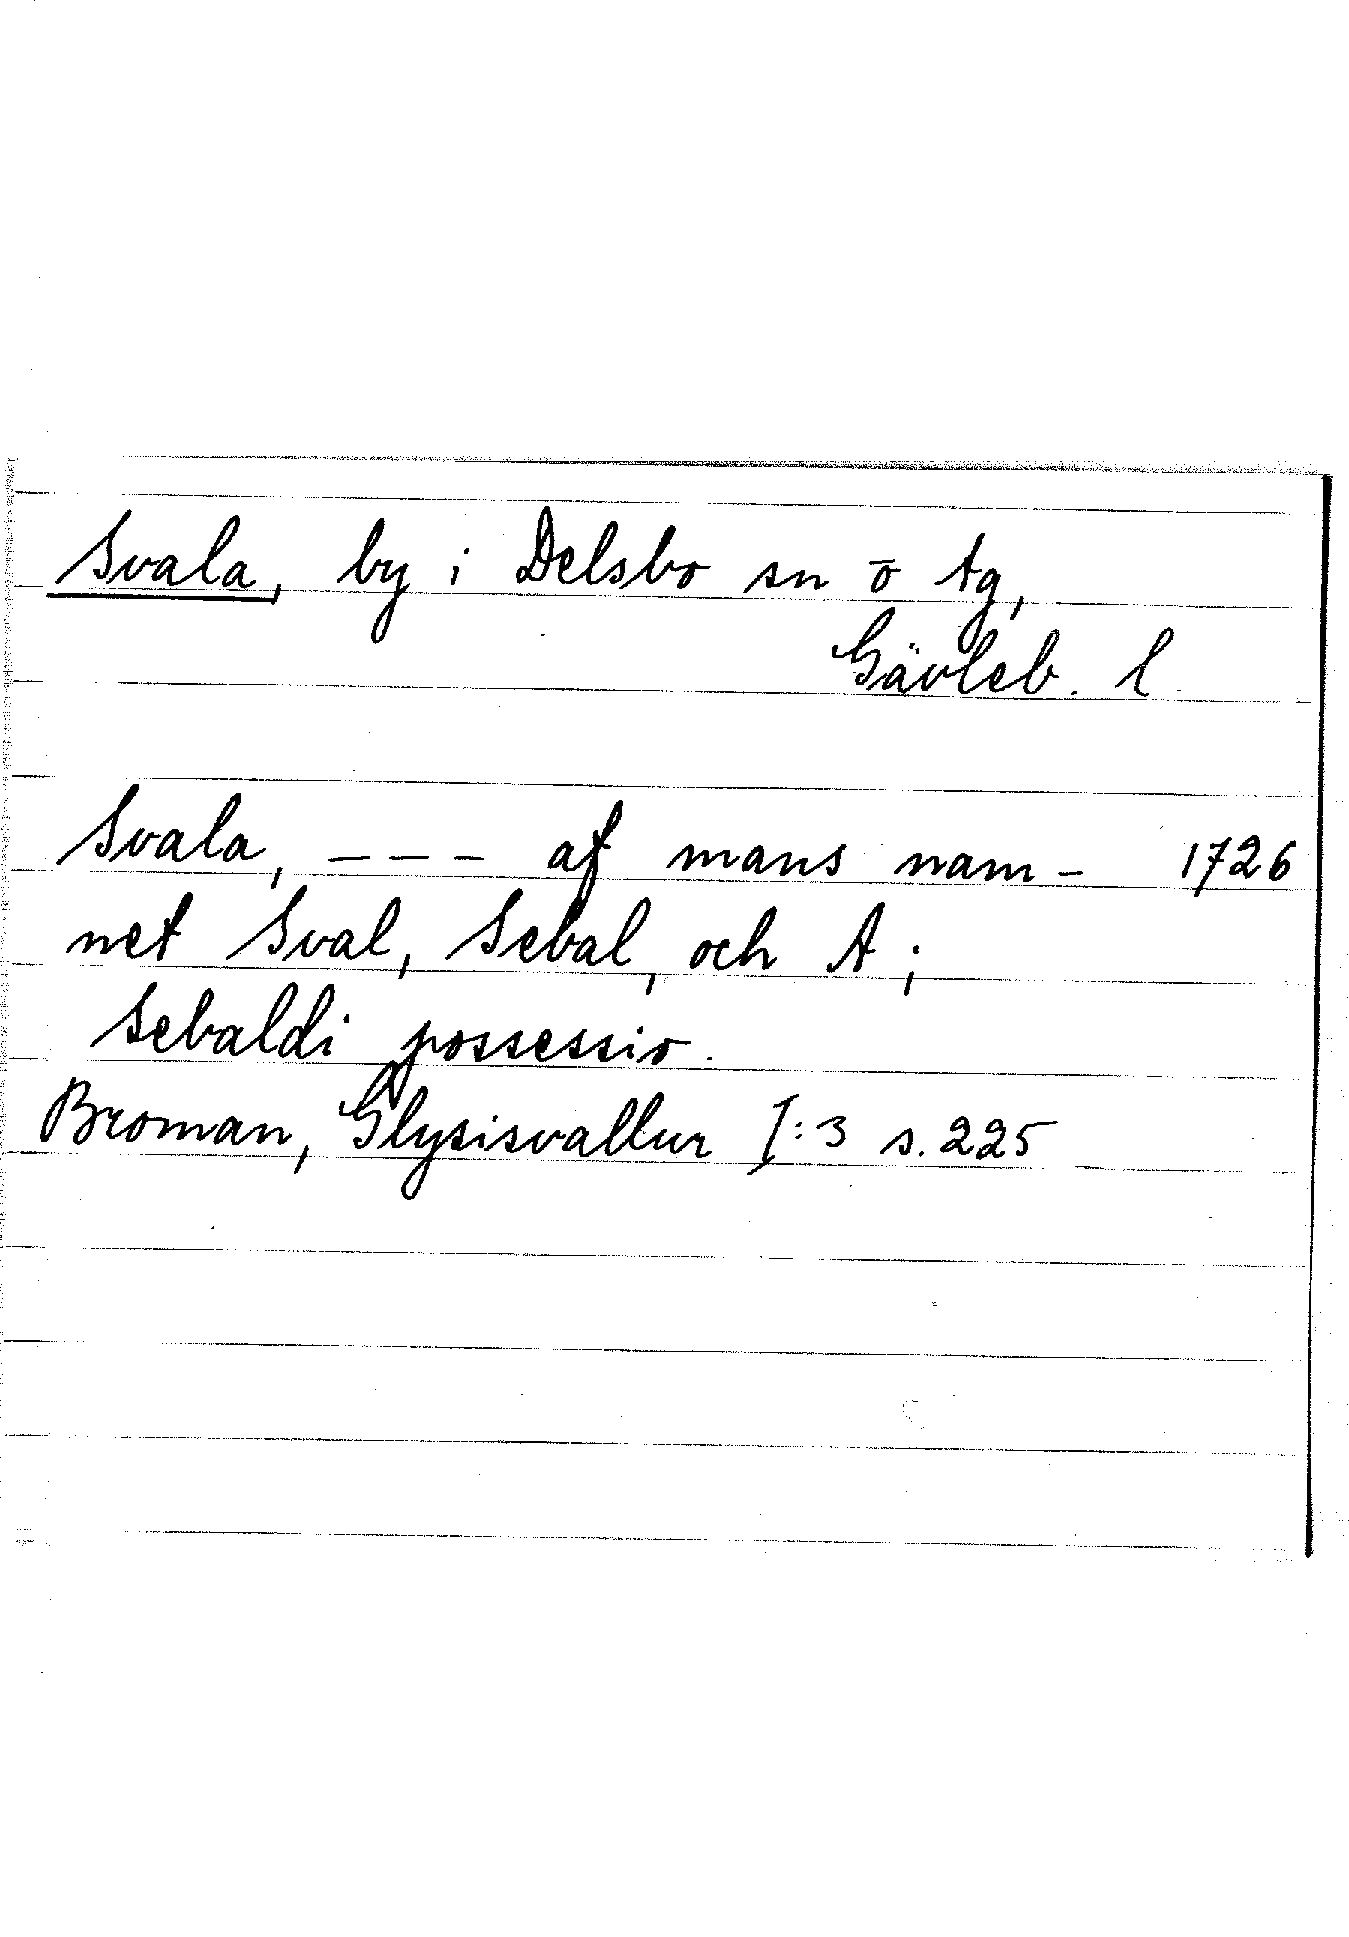 Svala, by i Delsbo sn o tg,
Gävleb. l.
Svala, --- af mans nam- 1726
net Sval, Sebal, och A;
Sebaldi possessio.
Broman, Glysisvallur I:3 s. 225